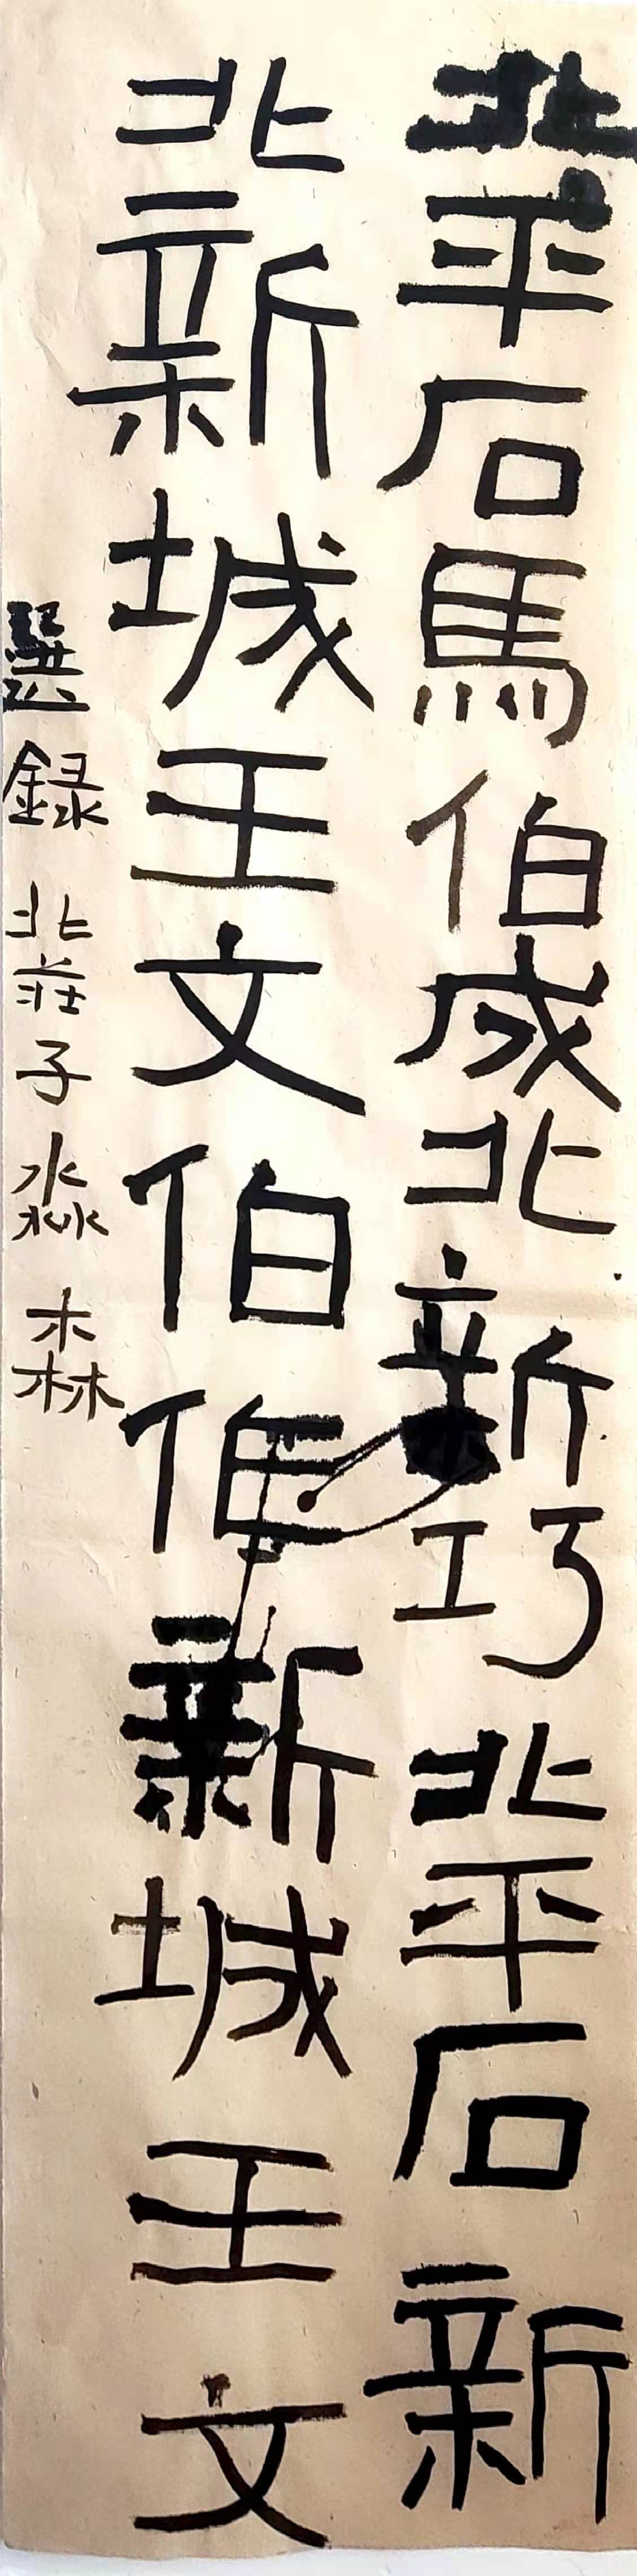 北平石馬伯成北新巧北平石新
北新城王文伯作新城王文
選録北莊子淼森